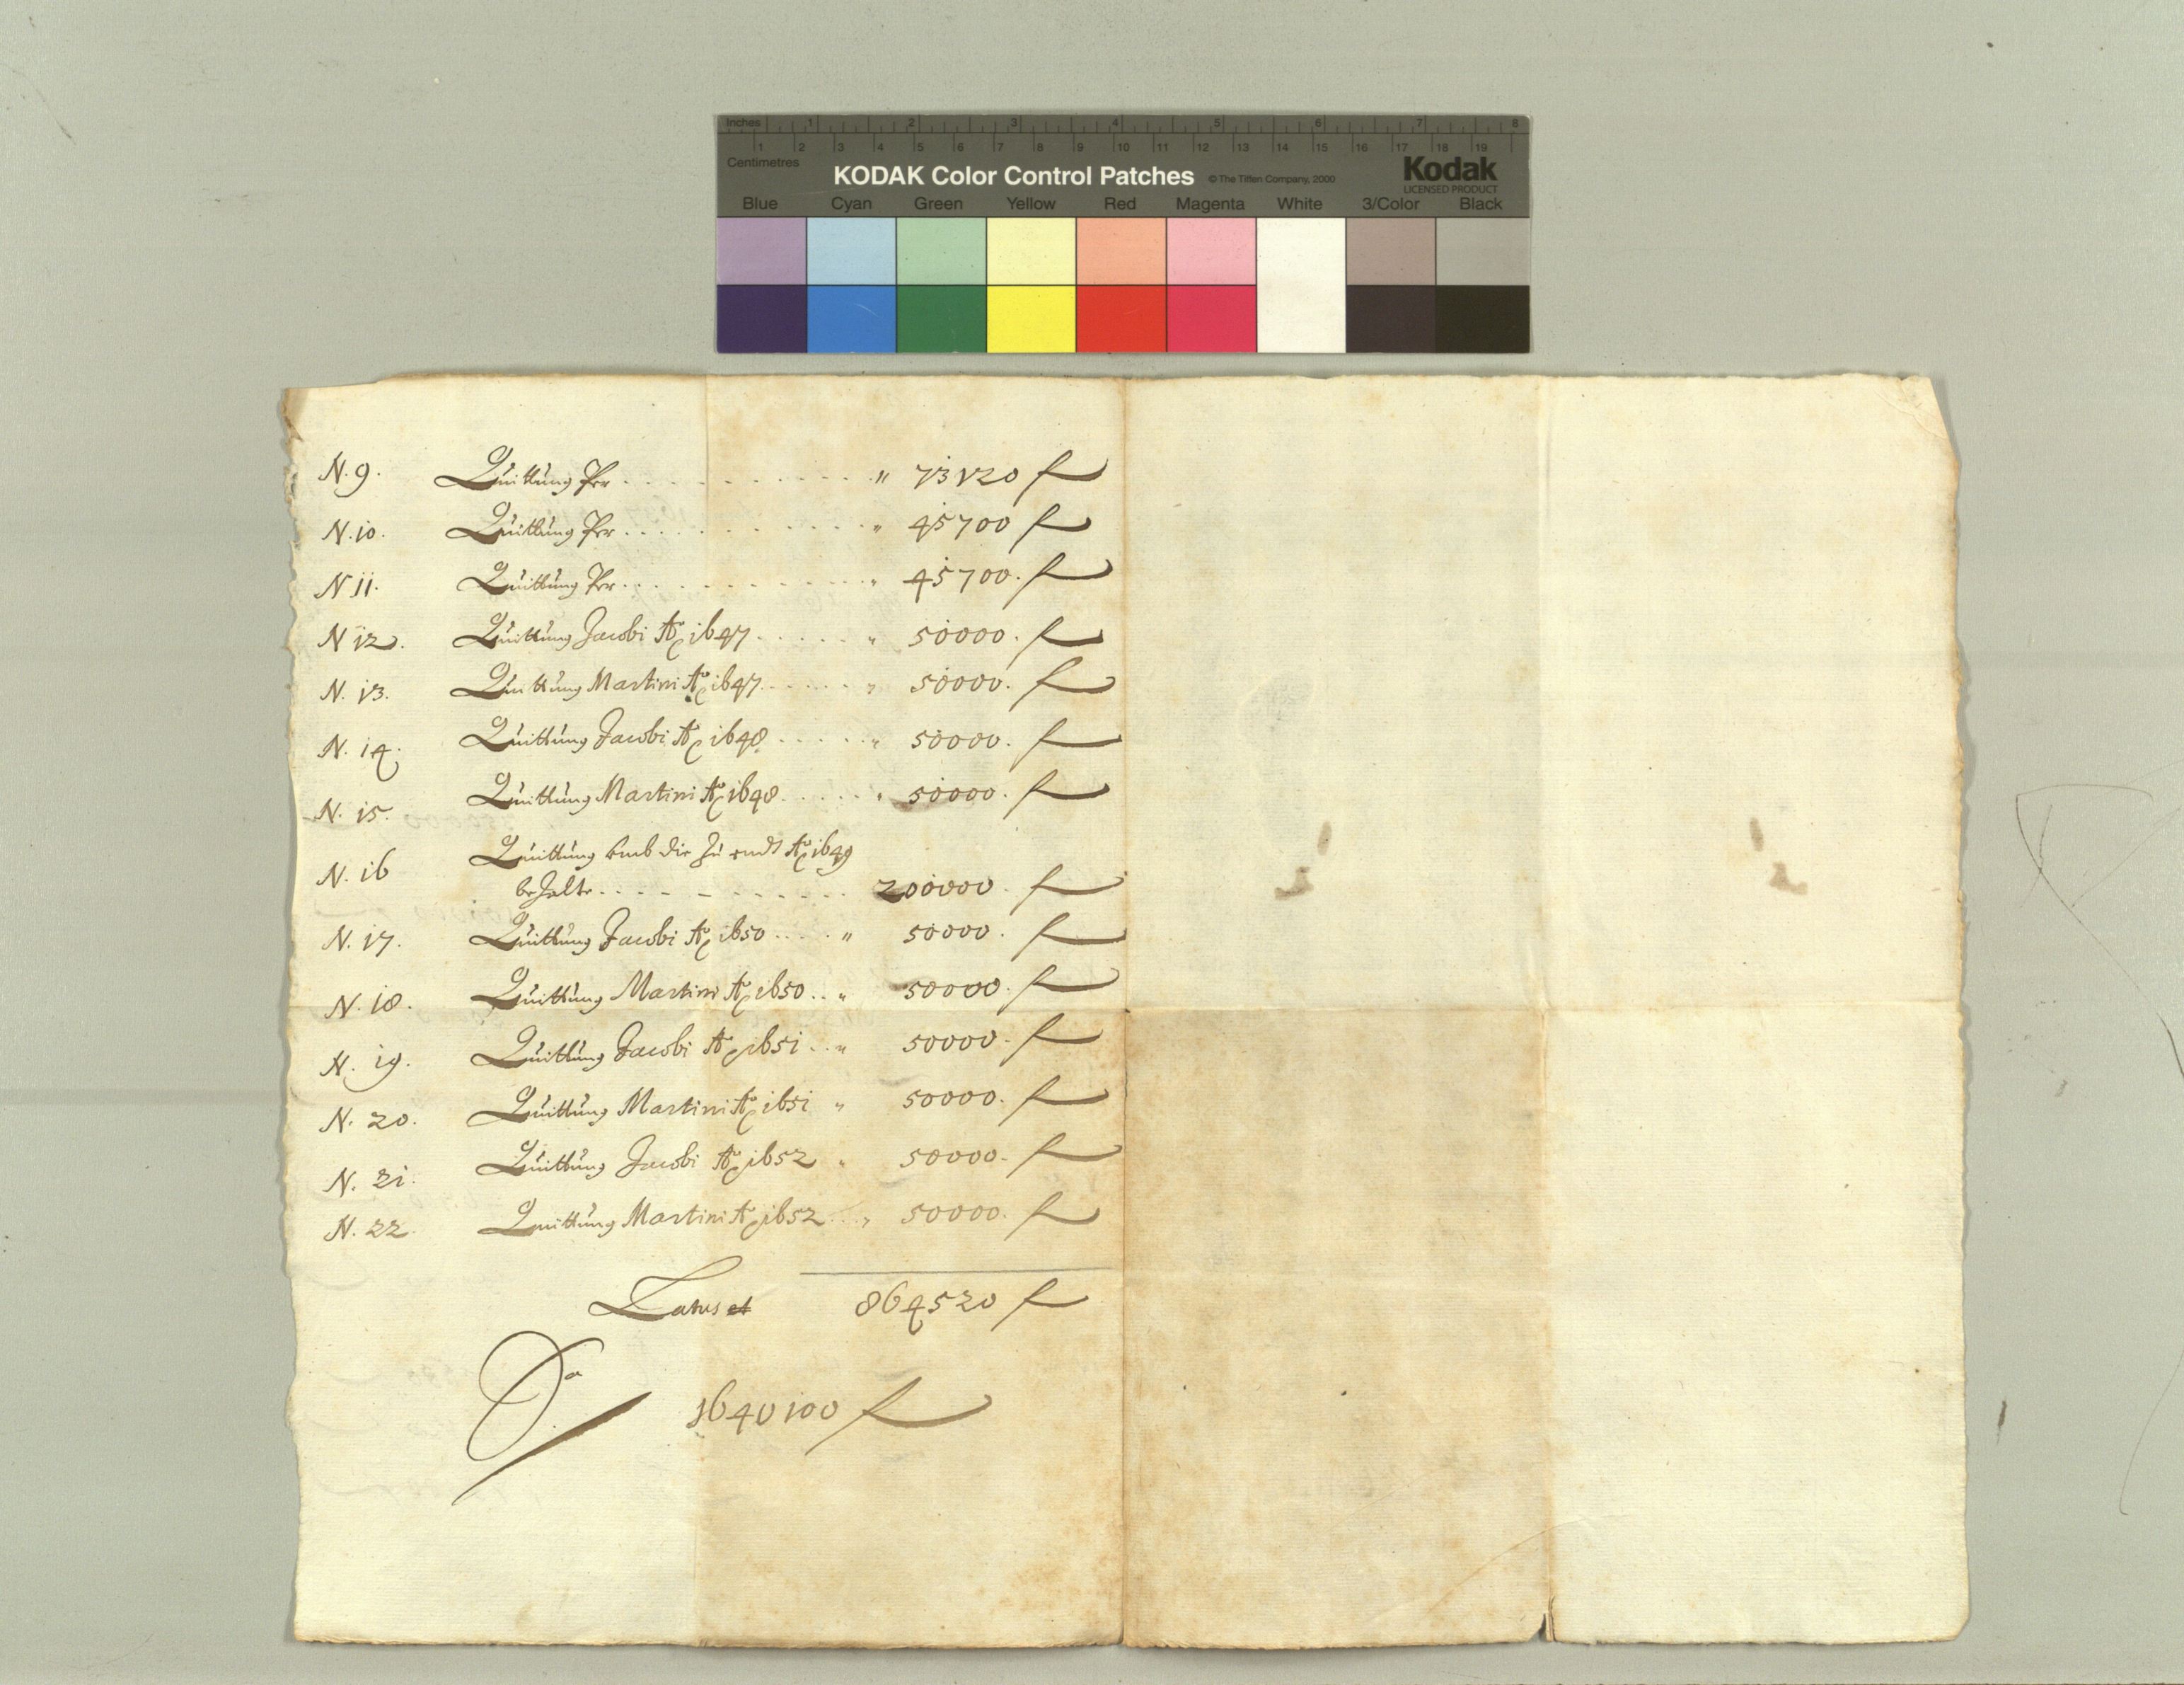 Inches 1 2 3 4 5 6 7 8
1 2 3 4 5 6 7 8 9 10 11 12 13 14 15 16 17 18 19
Centimetres
KODAK Color Control Patches © The Tiffen Company, 2000 Kodak
LICENSED PRODUCT
Blue Cyan Green Yellow Red Magenta White 3/Color Black
N. 9. Quittung Per . . . . . . . . . . . " 73120 f
N. 10. Quittung Per . . . . . . . . . . . " 45700 f
N 11. Quittung Per . . . . . . . . . . . " 45700. f
N 12. Quittung Jacobi Ao 1647 . . . . . " 50000. f
N. 13. Quittung Martini Ao 1647 . . . . . " 50000. f
N. 14. Quittung Jacobi Ao 1648 . . . . . " 50000. f
N. 15. Quittung Martini Ao 1648 . . . . . " 50000. f
N. 16 Quittung vmb die Zu endt Ao 1649
beZalte . . . . . . . . . . . 200000. f
N. 17. Quittung Jacobi Ao 1650 . . . . " 50000. f
N. 18. Quittung Martini Ao 1650 . . " 50000. f
N. 19. Quittung Jacobi Ao 1651 . . " 50000. f
N. 20. Quittung Martini Ao 1651 " 50000. f
N. 21. Quittung Jacobi Ao 1652 " 50000. f
N. 22. Quittung Martini Ao 1652 . . " 50000. f
Latus et 864520 f
1640100 f